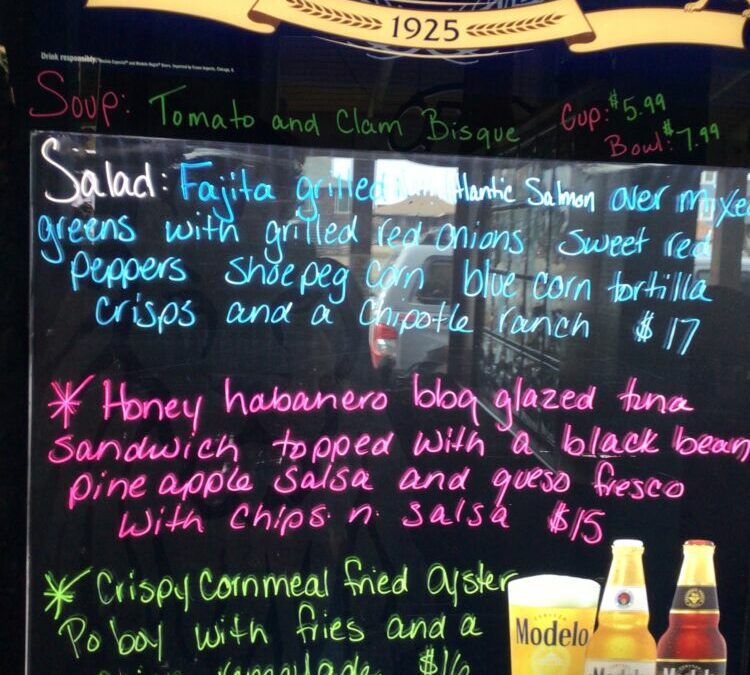 1925
Drink responsibly.
Soup: Tomato and Clam Bisque Cup: $5.99
Bowl: $7.99
Salad: Fajita grilled Atlantic Salmon over mixe
greens with grilled red onions sweet red
peppers shoe peg corn blue corn tortilla
crisps and a Chipotle ranch $17
* Honey habanero bbq glazed tuna
sandwich topped with a black bean
pineapple salsa and queso fresco
with chips n salsa $15
* Crispy Cornmeal fried Oyster
Po boy with fries and a
remoulade $16
Modelo